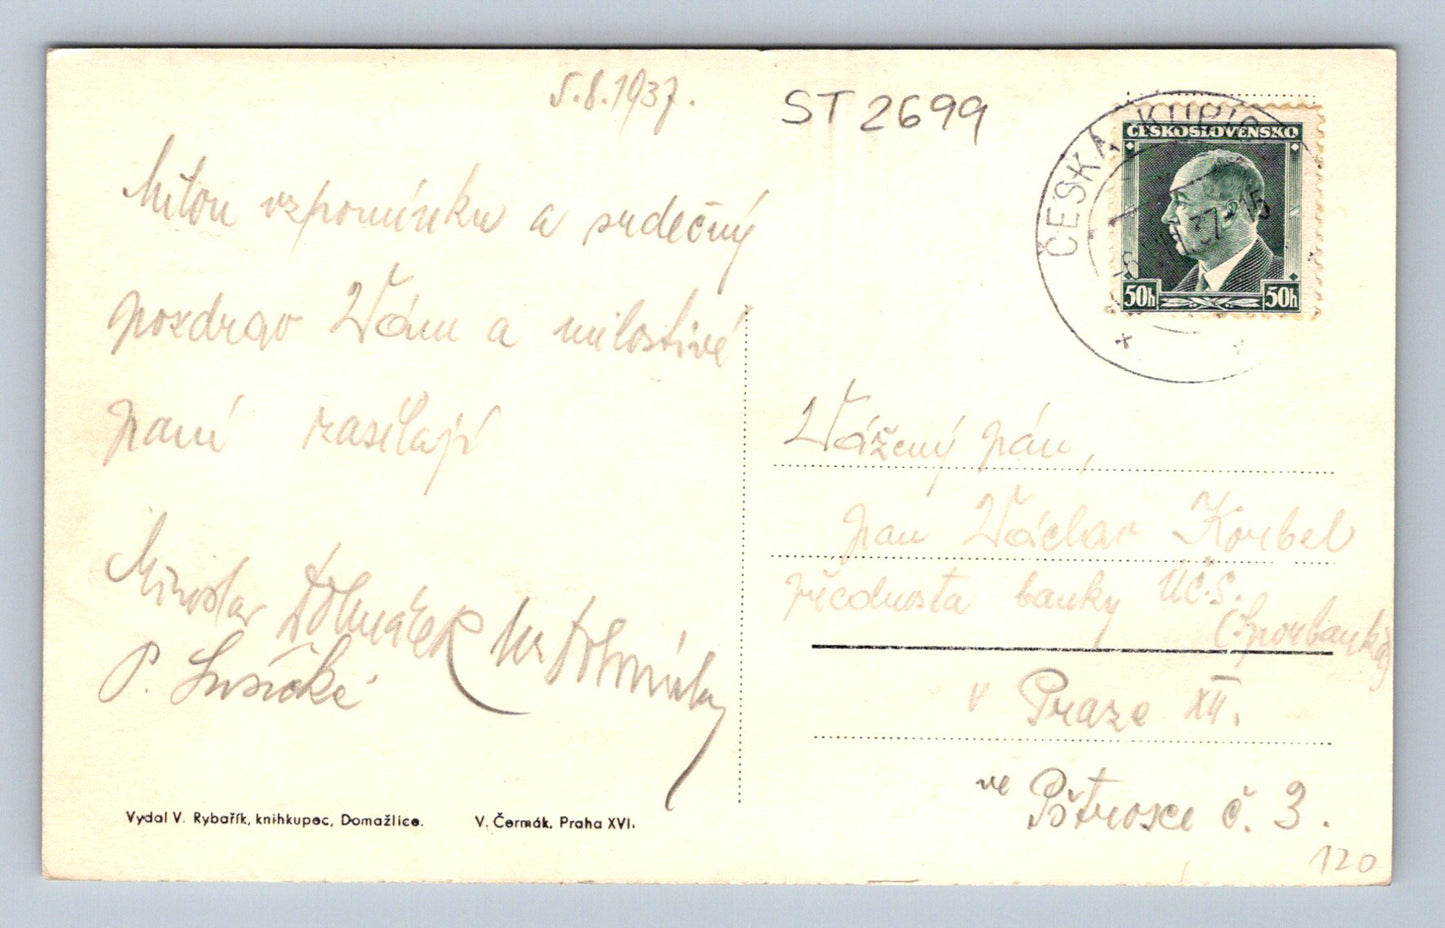 5.8.1937.
ST 2699
ČESKÁ KUBICE
37-15
ČESKOSLOVENSKO
50h 50h
Milou vzpomínku a srdečný
pozdrav Vám a milostivé
paní zasílají
Miroslav
P.
Vážený pán,
pan Václav Korbel
přednosta banky
v Praze XII.
ve Pštrosce č. 3.
120
Vydal V. Rybařík, knihkupec, Domažlice. V. Čermák, Praha XVI.